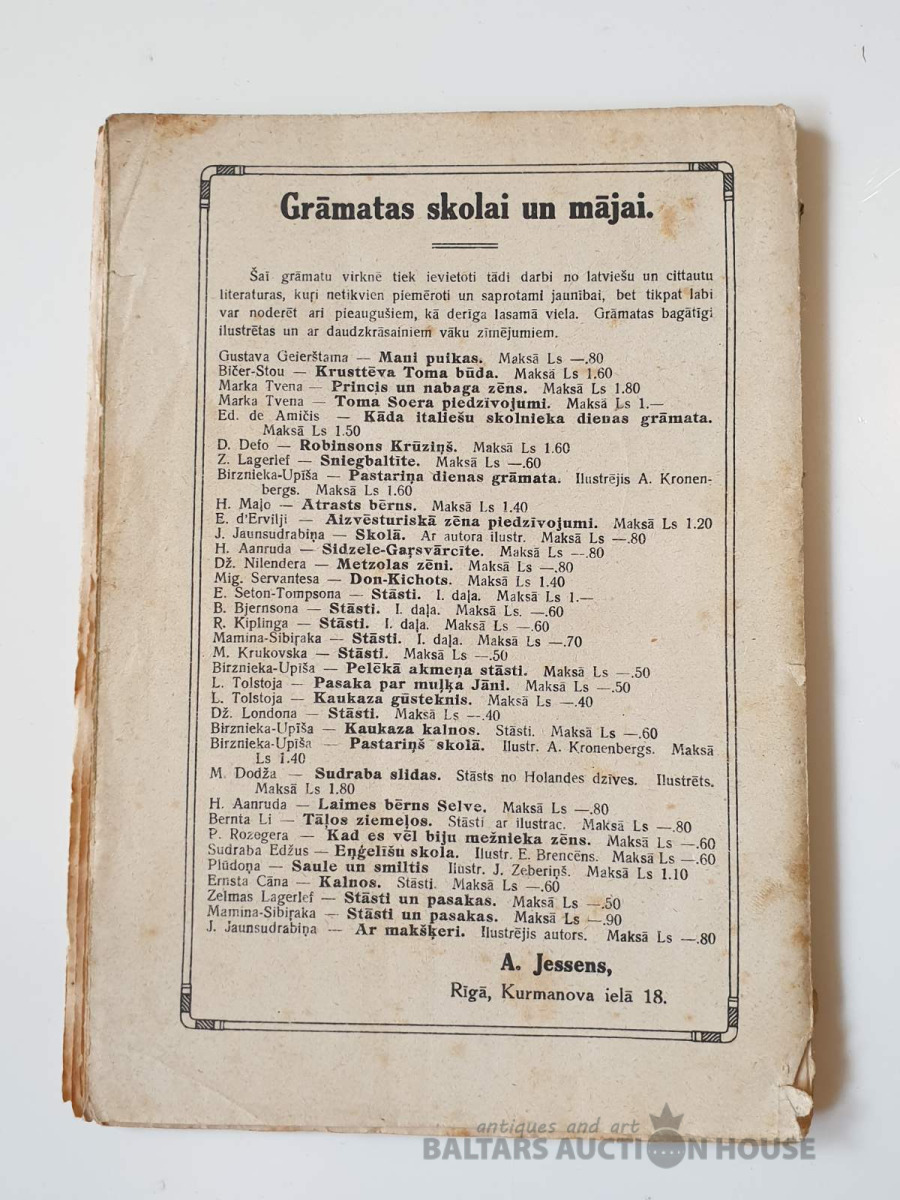 Grāmatas skolai un mājai.
Šaī grāmatu virknē tiek ievietoti tādi darbi no latviešu un cittautu
literaturas, kuŗi netikvien piemēroti un saprotami jaunībai, bet tikpat labi
var noderēt ari pieaugušiem, kā derīga lasamā viela. Grāmatas bagātīgi
ilustrētas un ar daudzkrāsainiem vāku zīmējumiem.
Gustava Geierštama — Mani puikas. Maksā Ls —.80
Bičer-Stou — Krusttēva Toma būda. Maksā Ls 1.60
Marka Tvena — Princis un nabaga zēns. Maksā Ls 1.80
Marka Tvena — Toma Soera piedzīvojumi. Maksā Ls 1.—
Ed. de Amičis — Kāda italiešu skolnieka dienas grāmata.
Maksā Ls 1.50
D. Defo — Robinsons Krūziņš. Maksā Ls 1.60
Z. Lagerlef — Sniegbaltīte. Maksā Ls —.60
Birznieka-Upīša — Pastariņa dienas grāmata. Ilustrējis A. Kronen-
bergs. Maksā Ls 1.60
H. Malo — Atrasts bērns. Maksā Ls 1.40
E. d'Erviljī — Aizvēsturiskā zēna piedzīvojumi. Maksā Ls 1.20
J. Jaunsudrabiņa — Skolā. Ar autora ilustr. Maksā Ls —.80
H. Aanruda — Sidzele-Gaŗsvārcīte. Maksā Ls —.80
Dž. Nilendera — Metzolas zēni. Maksā Ls —.80
Mig. Servantesa — Don-Kichots. Maksā Ls 1.40
E. Seton-Tompsona — Stāsti. I. daļa. Maksā Ls 1.—
B. Bjernsona — Stāsti. I. daļa. Maksā Ls. —.60
R. Kiplinga — Stāsti. I. daļa. Maksā Ls —.60
Mamina-Sibiŗaka — Stāsti. I. daļa. Maksā Ls —.70
M. Krukovska — Stāsti. Maksā Ls —.50
Birznieka-Upīša — Pelēkā akmeņa stāsti. Maksā Ls —.50
L. Tolstoja — Pasaka par muļķa Jāni. Maksā Ls —.50
L. Tolstoja — Kaukaza gūsteknis. Maksā Ls —.40
Dž. Londona — Stāsti. Maksā Ls —.40
Birznieka-Upīša — Kaukaza kalnos. Stāsti. Maksā Ls —.60
Birznieka-Upīša — Pastariņš skolā. Ilustr. A. Kronenbergs. Maksā
Ls 1.40
M. Dodža — Sudraba slidas. Stāsts no Holandes dzīves. Ilustrēts.
Maksā Ls 1.80
H. Aanruda — Laimes bērns Selve. Maksā Ls —.80
Bernta Li — Tāļos ziemeļos. Stāsti ar ilustrac. Maksā Ls —.80
P. Rozegera — Kad es vēl biju mežnieka zēns. Maksā Ls —.60
Sudraba Edžus — Eņģelīšu skola. Ilustr. E. Brencēns. Maksā Ls —.60
Plūdoņa — Saule un smiltis Ilustr. J. Zeberiņš. Maksā Ls 1.10
Ernsta Cāna — Kalnos. Stāsti. Maksā Ls —.60
Zelmas Lagerlef — Stāsti un pasakas. Maksā Ls —.50
Mamina-Sibiŗaka — Stāsti un pasakas. Maksā Ls —.90
J. Jaunsudrabiņa — Ar makšķeri. Ilustrējis autors. Maksā Ls —.80
A. Jessens,
Rīgā, Kurmanova ielā 18.
antiques and art
BALTARS AUCTION HOUSE